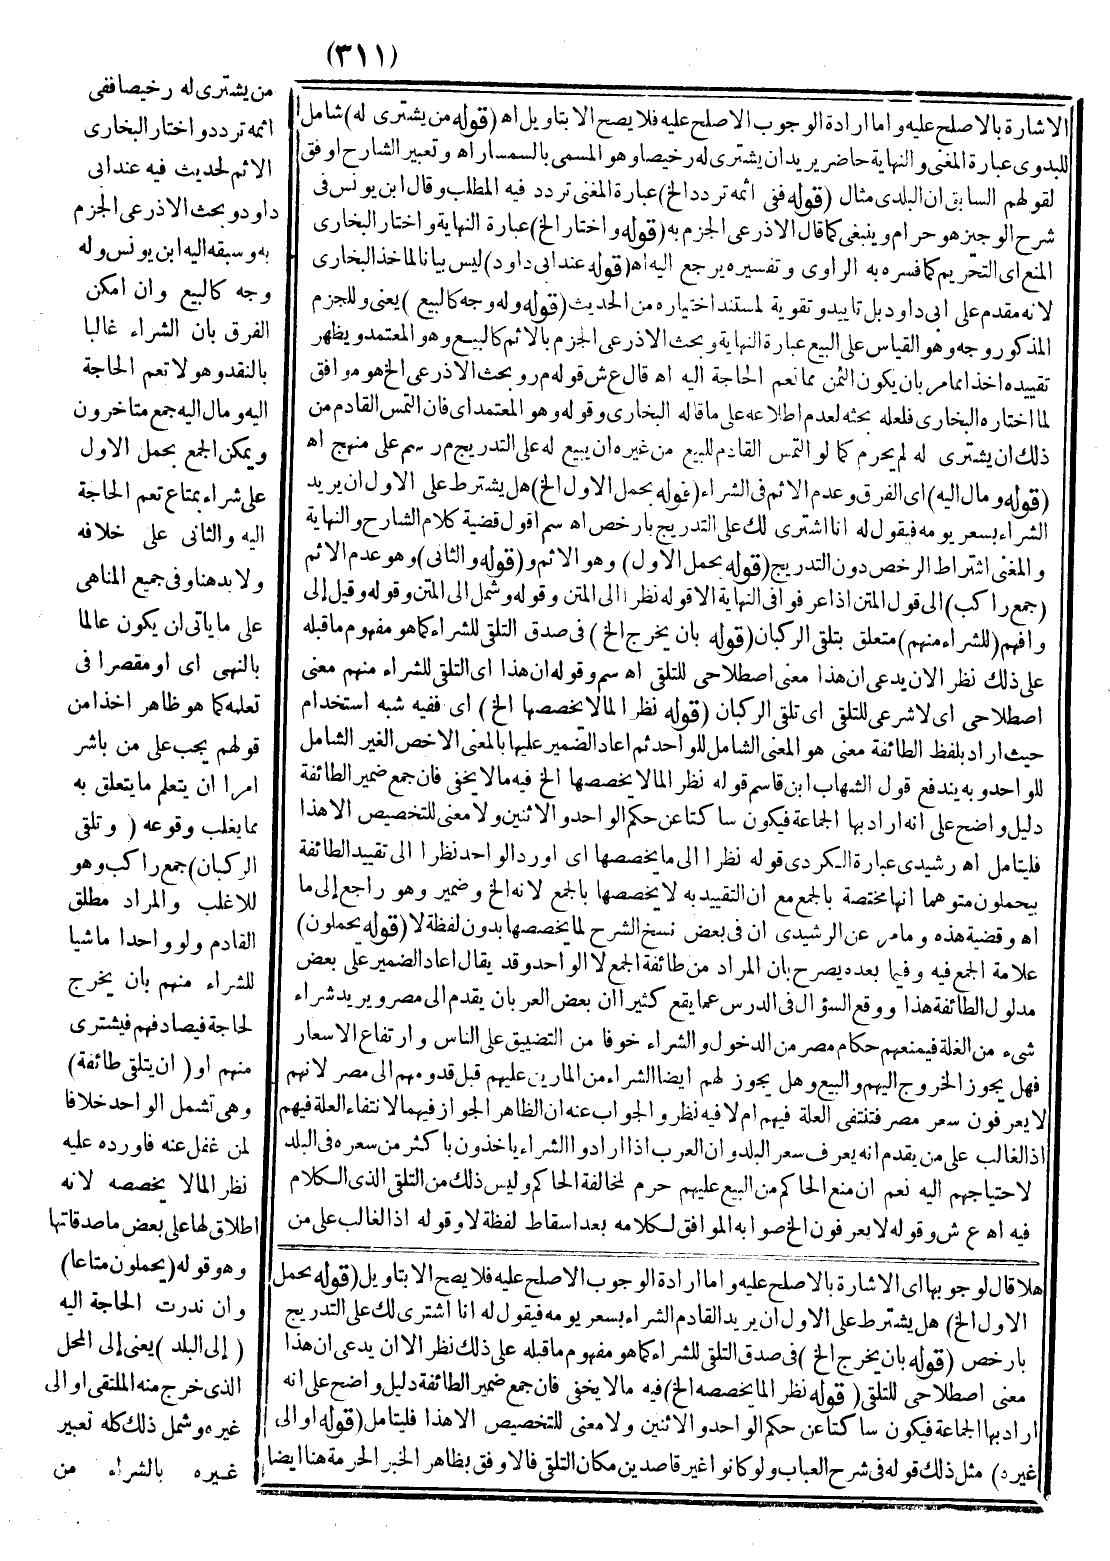 (٣١١)
الاشارة بالاصلح عليه واما ارادة الوجوب الاصلح عليه فلا يصح الا بتاويل اه (قوله من يشترى له) شامل
للبدوى عبارة المغنى والنهاية حاضر يريد ان يشترى له رخيصا وهو المسمى بالسمسار اه وتعبير الشارح اوفق
لقولهم السابق ان البلدى مثال (قوله ففى اثمه تردد الخ) عبارة المغنى تردد فيه المطلب وقال ابن يونس فى
شرح الوجيز هو حرام وينبغى كما قال الاذرعى الجزم به (قوله واختار الخ) عبارة النهاية واختار البخارى
المنع اى التحريم كما فسره به الراوى وتفسيره يرجع اليه اه (قوله عند ابى داود) ليس بيانا لماخذ البخارى
لانه مقدم على ابى داود بل تاييد وتقوية لمستند اختياره من الحديث (قوله وله وجه كالبيع) يعنى وللجزم
المذكور وجه وهو القياس على البيع عبارة النهاية وبحث الاذرعى الجزم بالاثم كالبيع وهو المعتمد ويظهر
تقييده اخذا مما مر بان يكون الثمن مما تعم الحاجة اليه اه قال ع ش قوله م ر وبحث الاذرعى الخ هو موافق
لما اختاره البخارى فلعله بحثه لعدم اطلاعه على ما قاله البخارى وقوله وهو المعتمد اى فان التمس القادم من
ذلك ان يشترى له لم يحرم كما لو التمس القادم للبيع من غيره ان يبيع له على التدريج م ر سم على منهج اه
(قوله ومال اليه) اى الفرق وعدم الاثم فى الشراء (قوله بحمل الاول الخ) هل يشترط على الاول ان يريد
الشراء بسعر يومه فيقول له انا اشترى لك على التدريج بارخص اه سم اقول قضية كلام الشارح والنهاية
والمغنى اشتراط الرخص دون التدريج (قوله بحمل الاول) وهو الاثم و (قوله والثانى) وهو عدم الاثم
(جمع راكب) الى قول المتن اذا عرفوا فى النهاية الا قوله نظرا الى المتن وقوله وشمل الى المتن وقوله وقيل إلى
وافهم (للشراء منهم) متعلق بتلقى الركبان (قوله بان يخرج الخ) فى صدق التلقى للشراء كما هو مفهوم ما قبله
على ذلك نظر الا ان يدعى ان هذا معنى اصطلاحى للتلقى اه سم وقوله ان هذا اى التلقى للشراء منهم معنى
اصطلاحى اى لا شرعى للتلقى اى تلقى الركبان (قوله نظرا لما لا يخصصها الخ) اى ففيه شبه استخدام
حيث اراد بلفظ الطائفة معنى هو المعنى الشامل للواحد ثم اعاد الضمير عليها بالمعنى الاخص الغير الشامل
للواحد وبه يندفع قول الشهاب ابن قاسم قوله نظرا لما لا يخصصها الخ فيه ما لا يخفى فان جمع ضمير الطائفة
دليل واضح على انه اراد بها الجماعة فيكون ساكتا عن حكم الواحد والاثنين ولا معنى للتخصيص الا هذا
فليتامل اه رشيدى عبارة الكردى قوله نظرا الى ما يخصصها اى اورد الواحد نظرا الى تقييد الطائفة
بيحملون متوهما انها مختصة بالجمع مع ان التقييد به لا يخصصها بالجمع لانه الخ وضمير وهو راجع إلى ما
اه وقضية هذه وما مر عن الرشيدى ان فى بعض نسخ الشرح لما يخصصها بدون لفظة لا (قوله يحملون)
علامة الجمع فيه وفيما بعده يصرح بان المراد من طائفة الجمع لا الواحد وقد يقال اعاد الضمير على بعض
مدلول الطائفة هذا ووقع السؤال فى الدرس عما يقع كثيرا ان بعض العربان يقدم الى مصر ويريد شراء
شىء من الغلة فيمنعهم حكام مصر من الدخول والشراء خوفا من التضييق على الناس وارتفاع الاسعار
فهل يجوز الخروج اليهم والبيع وهل يجوز لهم ايضا الشراء من المارين عليهم قبل قدومهم الى مصر لانهم
لا يعرفون سعر مصر فتنتفى العلة فيهم ام لا فيه نظر والجواب عنه ان الظاهر الجواز فيهما لانتفاء العلة فيهم
اذ الغالب على من يقدم انه يعرف سعر البلد وان العرب اذا ارادوا الشراء ياخذون باكثر من سعره فى البلد
لاحتياجهم اليه نعم ان منع الحاكم من البيع عليهم حرم لمخالفة الحاكم وليس ذلك من التلقى الذى الكلام
فيه اه ع ش وقوله لا يعرفون الخ صوابه الموافق لكلامه بعد اسقاط لفظة لا وقوله اذ الغالب على من
هلا قال لوجوبها اى الاشارة بالاصلح عليه واما ارادة الوجوب الاصلح عليه فلا يصح الا بتاويل (قوله بحمل
الاول الخ) هل يشترط على الاول ان يريد القادم الشراء بسعر يومه فيقول له انا اشترى لك على التدريج
بارخص (قوله بان يخرج الخ) فى صدق التلقى للشراء كما هو مفهوم ما قبله على ذلك نظر الا ان يدعى ان هذا
معنى اصطلاحى للتلقى (قوله نظر لما يخصصه الخ) فيه ما لا يخفى فان جمع ضمير الطائفة دليل واضح على انه
اراد بها الجماعة فيكون ساكتا عن حكم الواحد والاثنين ولا معنى للتخصيص الا هذا فليتامل (قوله او الى
غيره) مثل ذلك قوله فى شرح العباب ولو كانوا غير قاصدين مكان التلقى فالاوفق بظاهر الخبر الحرمة هنا ايضا
من يشترى له رخيصا ففى
اثمه تردد واختار البخارى
الاثم لحديث فيه عند ابى
داود وبحث الاذرعى الجزم
به وسبقه اليه ابن يونس وله
وجه كالبيع وان امكن
الفرق بان الشراء غالبا
بالنقد وهو لا تعم الحاجة
اليه ومال اليه جمع متاخرون
ويمكن الجمع بحمل الاول
على شراء بمتاع تعم الحاجة
اليه والثانى على خلافه
ولا بد هنا وفى جميع المناهى
على ما ياتى ان يكون عالما
بالنهى اى او مقصرا فى
تعلمه كما هو ظاهر اخذا من
قولهم يجب على من باشر
امرا ان يتعلم ما يتعلق به
مما يغلب وقوعه (وتلقى
الركبان) جمع راكب وهو
للاغلب والمراد مطلق
القادم ولو واحدا ماشيا
للشراء منهم بان يخرج
لحاجة فيصادفهم فيشترى
منهم او (ان يتلقى طائفة)
وهى تشمل الواحد خلافا
لمن غفل عنه فاورده عليه
نظرا لما لا يخصصه لانه
اطلاق لها على بعض ماصدقاتها
وهو قوله (يحملون متاعا)
وان ندرت الحاجة اليه
(إلى البلد) يعنى إلى المحل
الذى خرج منه الملتقى او الى
غيره وشمل ذلك كله تعبير
غيره بالشراء من